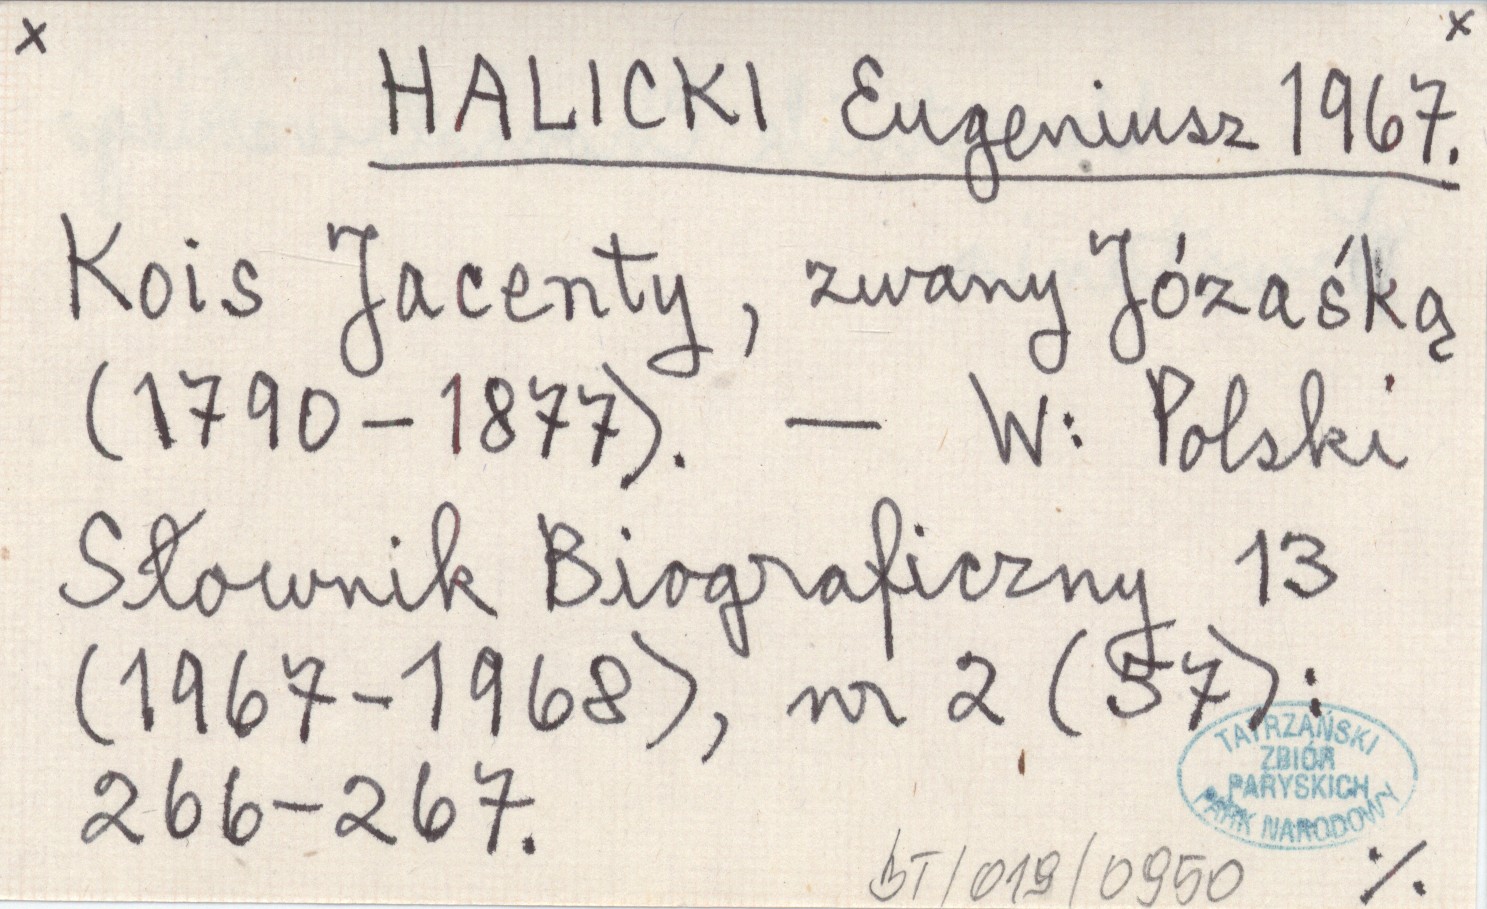 x x
HALICKI Eugeniusz 1967.
Kois Jacenty, zwany Józaśką
(1790–1877). — W: Polski
Słownik Biograficzny 13
(1967–1968), nr 2 (57):
266–267.
TATRZAŃSKI
ZBIÓR
PARYSKICH
PARK NARODOWY
BT/019/0950
·/.